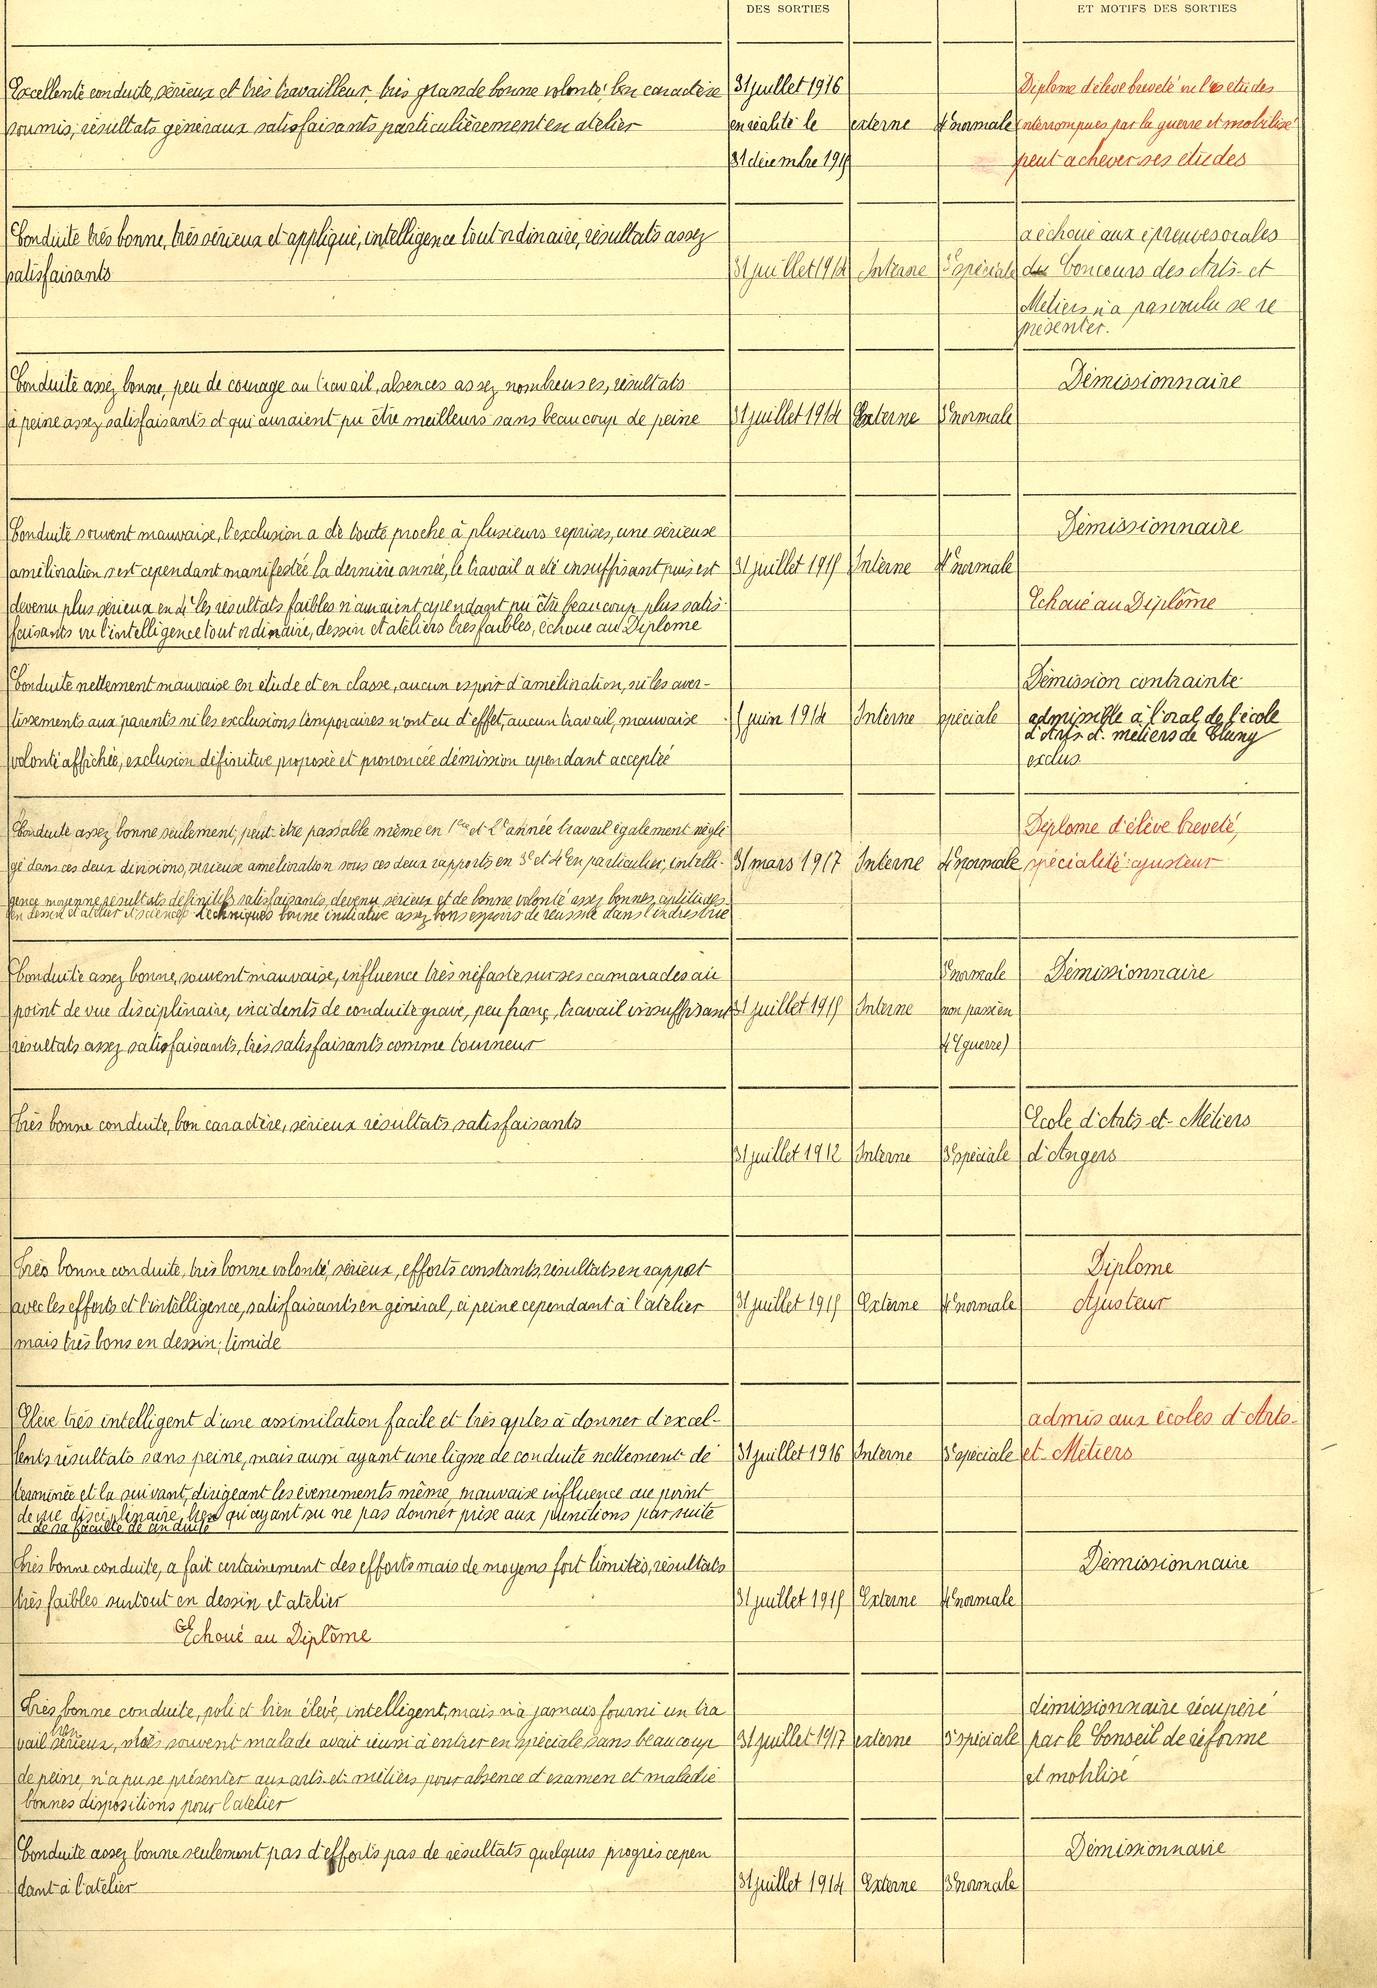 DES SORTIES
ET MOTIFS DES SORTIES
Excellente conduite, sérieux et très travailleur, très grande bonne volonté, bon caractère
soumis; résultats généraux satisfaisants particulièrement en atelier
31 juillet 1916
en réalité le
31 décembre 1915
externe
4e normale
Diplome d'élève breveté vu les études
interrompues par la guerre et mobilisé
peut achever ses études
Conduite très bonne, très sérieux et appliqué, intelligence tout ordinaire, résultats assez
satisfaisants
31 juillet 1914
Interne
3e spéciale
a échoué aux épreuves orales
du Concours des Arts-et
Métiers n'a pas voulu se re
présenter.
Conduite assez bonne, peu de courage au travail, absences assez nombreuses, résultats
à peine assez satisfaisants et qui auraient pu être meilleurs sans beaucoup de peine
31 juillet 1914
Externe
3e normale
Démissionnaire
Conduite souvent mauvaise, l'exclusion a été toute proche à plusieurs reprises, une sérieuse
amélioration s'est cependant manifestée la dernière année, le travail a été insuffisant puis est
devenu plus sérieux en 4e les résultats faibles n'auraient cependant pu être beaucoup plus satis-
faisants vu l'intelligence tout ordinaire, dessin et ateliers très faibles, échoue au Diplome
31 juillet 1915
Interne
4e normale
Démissionnaire
Echoué au Diplôme
Conduite nettement mauvaise en étude et en classe, aucun espoir d'amélioration, ni les aver-
tissements aux parents ni les exclusions temporaires n'ont eu d'effet, aucun travail, mauvaise
volonté affichée, exclusion définitive proposée et prononcée démission cependant acceptée
5 juin 1914
Interne
spéciale
Démission contrainte
admissible à l'oral de l'école
d'Arts et métiers de Cluny
exclus
Conduite assez bonne seulement, peut-être passable même en 1ère et 2e année travail également négli
gé dans ces deux divisions, sérieuse amélioration sous ces deux rapports en 3e et 4e en particulier; intelli-
gence moyenne résultats définitifs satisfaisants, devenu sérieux et de bonne volonté assez bonnes aptitudes
en dessin et atelier et sciences techniques bonne initiative assez bons espoirs de réussite dans l'industrie
31 mars 1917
Interne
4e normale
Diplome d'élève breveté,
spécialité: ajusteur
Conduite assez bonne, souvent mauvaise, influence très néfaste sur ses camarades au
point de vue disciplinaire, incidents de conduite grave, peu franç, travail insuffisant
résultats assez satisfaisants, très satisfaisants comme tourneur
31 juillet 1915
Interne
3e normale
non passé en
4e (guerre)
Démissionnaire
Très bonne conduite, bon caractère, sérieux résultats satisfaisants
31 juillet 1912
Interne
3e spéciale
Ecole d'Arts-et-Métiers
d'Angers
Très bonne conduite, très bonne volonté, sérieux, efforts constants, résultats en rapport
avec les efforts et l'intelligence, satisfaisants en général, à peine cependant à l'atelier
mais très bons en dessin; timide
31 juillet 1915
Externe
4e normale
Diplome
Ajusteur
Elève très intelligent d'une assimilation facile et très aptes à donner d'excel-
lents résultats sans peine, mais aussi ayant une ligne de conduite nettement dé
terminée et la suivant, dirigeant les évènements même, mauvaise influence au point
de vue disciplinaire, bien qu'ayant su ne pas donner prise aux punitions par suite
de sa faculté de conduite
31 juillet 1916
Interne
3e spéciale
admis aux écoles d'Arts-
et-Métiers
Très bonne conduite, a fait certainement des efforts mais de moyens fort limités, résultats
très faibles surtout en dessin et atelier
Echoué au Diplôme
31 juillet 1915
Externe
4e normale
Démissionnaire
Très bonne conduite, poli et bien élevé, intelligent, mais n'a jamais fourni un tra
vail bien sérieux, mais souvent malade avait réussi à entrer en spéciale sans beaucoup
de peine, n'a pu se présenter aux arts-et-métiers pour absence d'examen et maladie
bonnes dispositions pour l'atelier
31 juillet 1917
externe
3e spéciale
démissionnaire récupéré
par le Conseil de réforme
et mobilisé
Conduite assez bonne seulement pas d'efforts pas de résultats quelques progrès cepen
dant à l'atelier
31 juillet 1914
Externe
3e normale
Démissionnaire